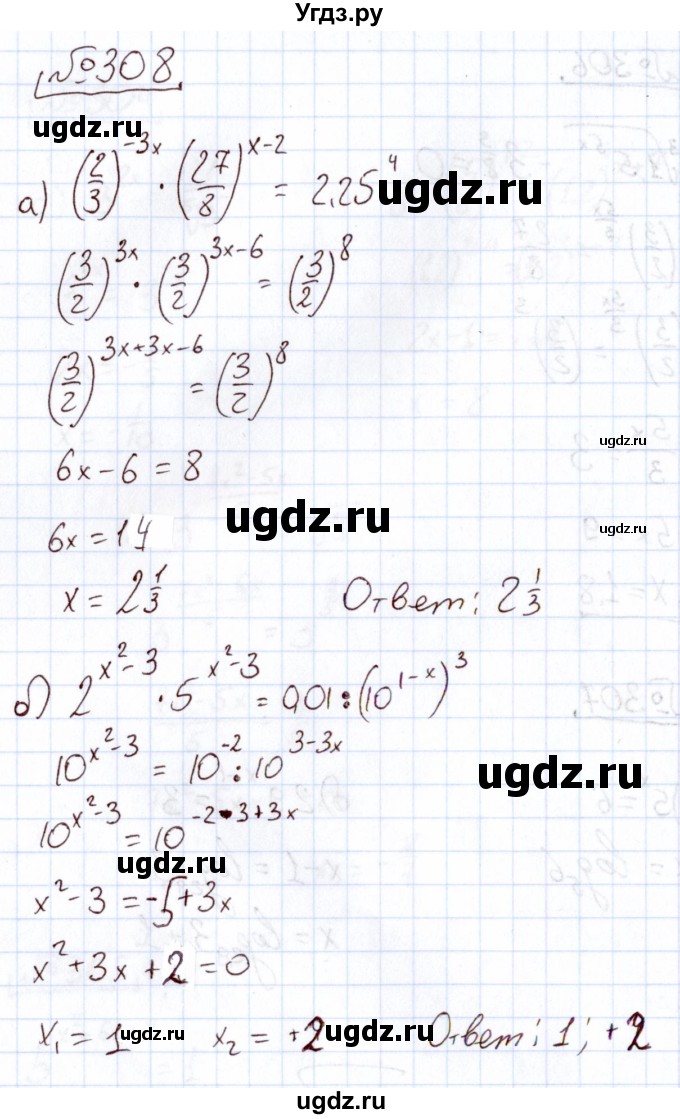 Угдз.ру
№308.
ugdz.ru
а) (2/3)^(-3x) · (27/8)^(x-2) = 2,25^4
ugdz.ru
(3/2)^(3x) · (3/2)^(3x-6) = (3/2)^8
(3/2)^(3x+3x-6) = (3/2)^8
ugdz.ru
6x - 6 = 8
ugdz.ru
6x = 14
ugdz.ru
x = 2 1/3 Ответ: 2 1/3
б) 2^(x²-3) · 5^(x²-3) = 0,01 : (10^(1-x))^3
10^(x²-3) = 10^(-2) : 10^(3-3x)
ugdz.ru
10^(x²-3) = 10^(-2-3+3x)
ugdz.ru
x² - 3 = -5 + 3x
x² + 3x + 2 = 0
x₁ = 1 x₂ = +2 Ответ: 1; +2
ugdz.ru ugdz.ru
ugdz.ru